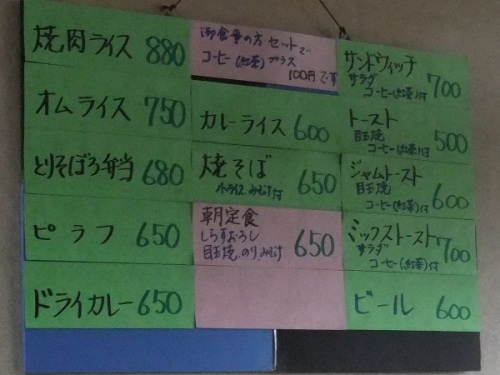 焼肉ライス 880
オムライス 750
とりそぼろ弁当 680
ピラフ 650
ドライカレー 650
御食事の方 セットで
コーヒー(紅茶)プラス
100円です
カレーライス 600
焼そば 650
小ライス みそ汁付
朝定食 650
しらすおろし
目玉焼 のり みそ汁
サンドウィッチ 700
サラダ
コーヒー(紅茶)付
トースト 500
目玉焼
コーヒー(紅茶)付
ジャムトースト 600
目玉焼
コーヒー(紅茶)付
ミックストースト 700
サラダ
コーヒー(紅茶)付
ビール 600